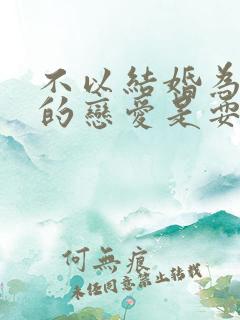 不以結婚為
的戀愛是耍
何無痕
未經同意禁止轉載